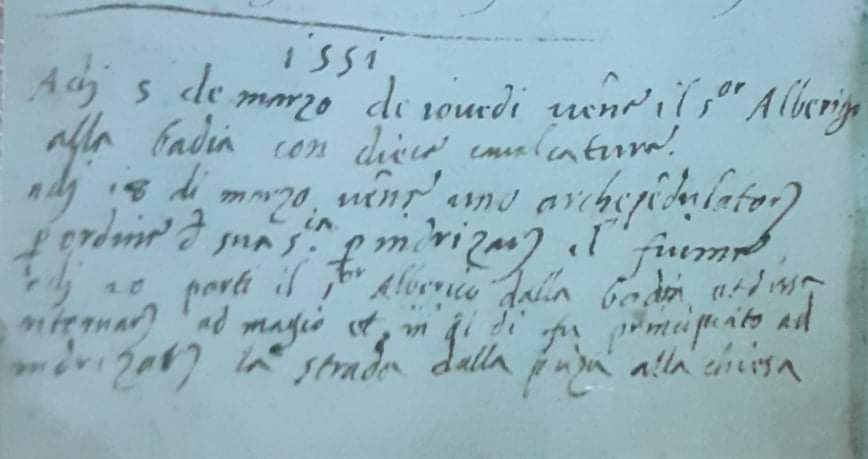 1551
Adj 5 de marzo de iovedi vēne il s.or Alberigo
alla badia con diece cavalcature.
adj 18 di marzo vēne uno archepēdulator
p ordine d sua s.ia p indrizar il fiume
adj 20 parti il s.or Alberico dalla badia et disse
ritornar ad magio et in qi di fu principiato ad
indrizar la strada dalla alla chiesa